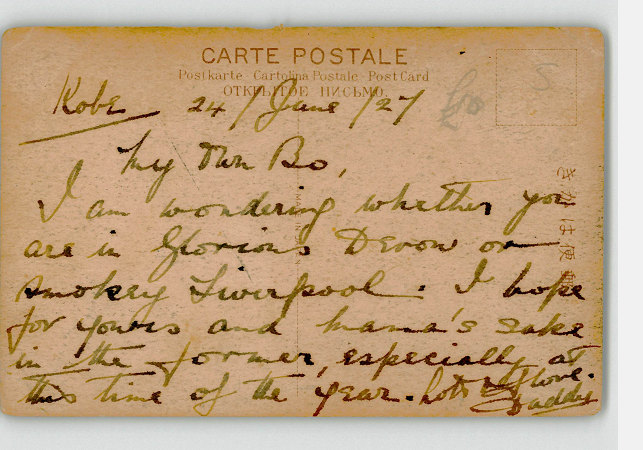 CARTE POSTALE
Postkarte Cartolina Postale Post Card
ОТКРЫТОЕ ПИСЬМО.
Kobe 24/June/27
My Own Bo,
I am wondering whether you
are in Glorious Devon or
smokey Liverpool. I hope
for yours and mama's sake
in the former, especially at
this time of the year. Lots of love.
Daddy
S
きかは便郵